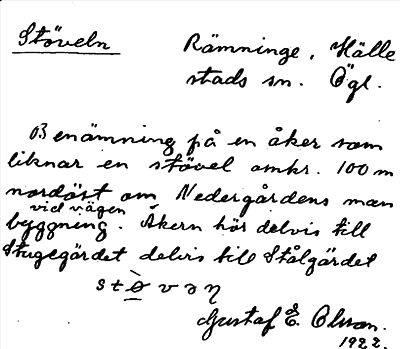 Stöveln
Rämninge, Hälle
stads sn. Ögl.
Benämning på en åker som
liknar en stövel omkr. 100 m
nordöst om Nedergårdens man
byggning. vid vägen Åkern hör delvis till
Stugegärdet delvis till Stålgärdet
Gustaf E. Olsson.
1922.